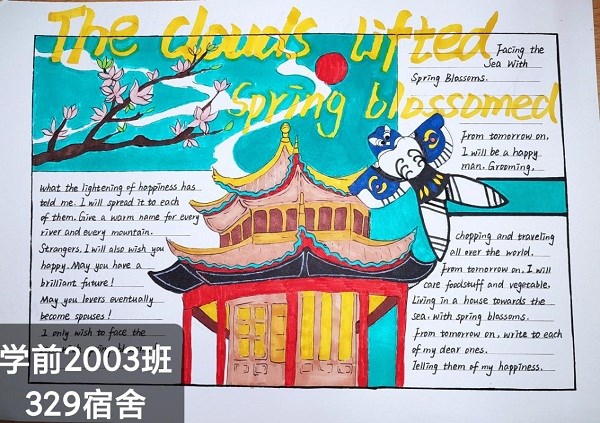 The clouds lifted
Spring blossomed
Facing the
Sea With
Spring Blossoms.
From tomorrow on,
I will be a happy
man. Grooming,
chopping and traveling
all over the world.
From tomorrow on, I will
care foodstuff and vegetable,
Living in a house towards the
sea, with spring blossoms.
From tomorrow on, write to each
of my dear ones.
Telling them of my happiness.
What the lightening of happiness has
told me. I will spread it to each
of them. Give a warm name for every
river and every mountain.
Strangers, I will also wish you
happy. May you have a
brilliant future!
May you lovers eventually
become spouses!
I only wish to face the
学前2003班
329宿舍